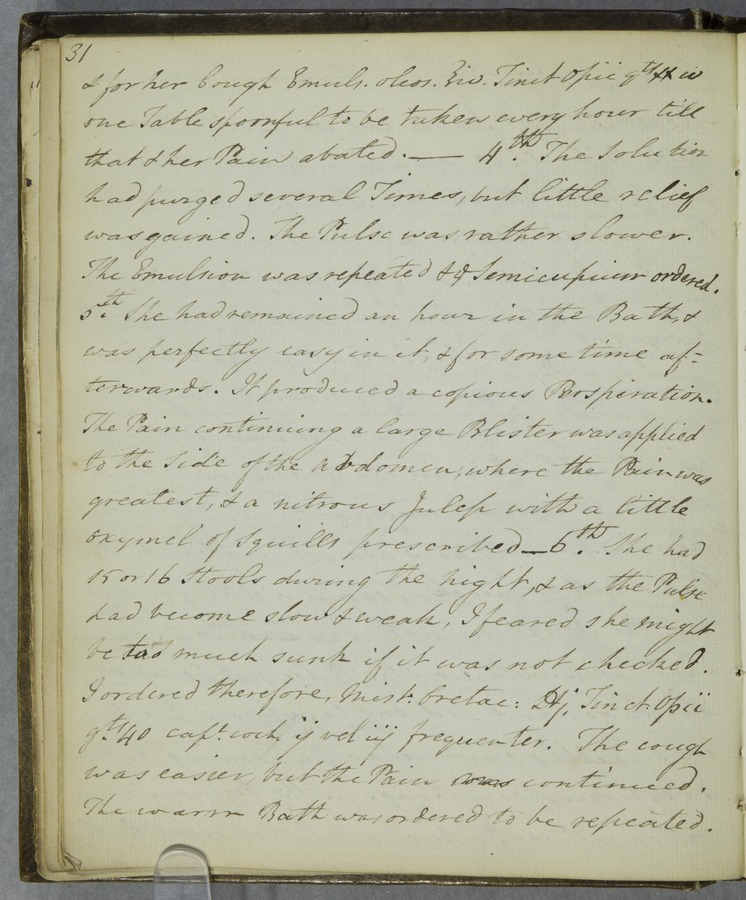 31
& for her Cough Emuls. oleos. ℥iv. Tinct Opii gtt
one Table spoonful to be taken every hour till
that & her Pain abated. — 4th. The Solution
had purged several Times, but little relief
was gained. The Pulse was rather slower.
The Emulsion was repeated & Semicupium ordered.
5th. She had remained an hour in the Bath, &
was perfectly easy in it, & for some time af=
terwards. It produced a copious Perspiration.
The Pain continuing a large Blister was applied
to the Side of the abdomen, where the Pain was
greatest, & a nitrous Julep with a little
oxymel of Squills prescribed — 6th. She had
15 or 16 Stools during the night, & as the Pulse
had become slow & weak, I feared she might
be too much sunk if it was not checked.
I ordered therefore, Mist: Cretac: Tinct. Opii
gtt 40 capt. coch. ij vel iij frequenter. The cough
was easier, but the Pain continued.
The warm Bath was ordered to be repeated.